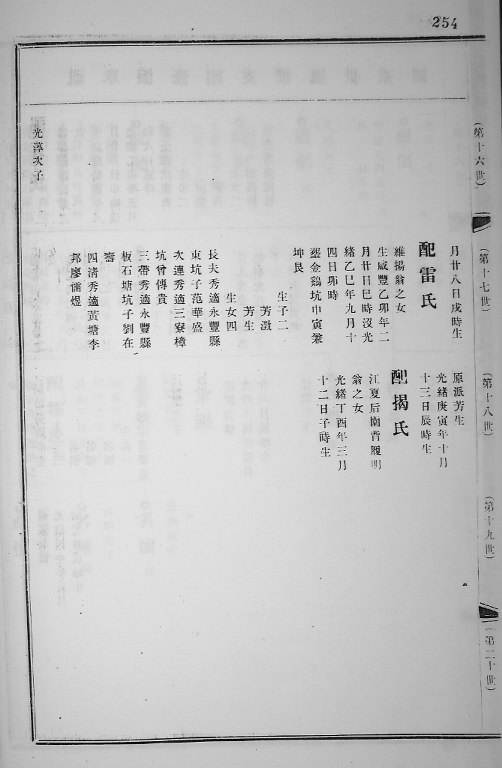 254
(第十六世)
(第十七世)
(第十八世)
(第十九世)
(第二十世)
光蓱次子
月廿八日戌時生
配雷氏
維揚翁之女
生咸豐乙卯年二
月廿日巳時沒光
緒乙巳年九月十
四日卯時
塟金鷄坑申寅兼
坤艮
生子二
芳澂
芳生
生女四
長夫秀適永豐縣
東坑子范華盛
次連秀適三寮樟
坑曾傳貴
三帶秀適永豐縣
板石塘坑子劉在
四清秀適黃塘李
邦廖
原派芳生
光緒庚寅年十月
十三日辰時生
配揭氏
江夏后闌背履明
翁之女
光緒丁酉年三月
十二日子時生